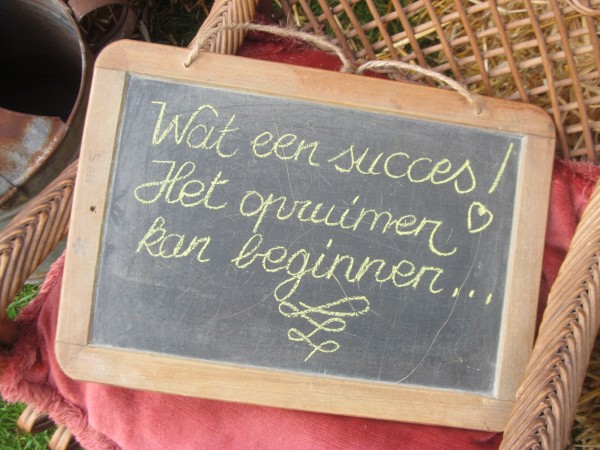 Wat een succes!
Het opruimen
kan beginnen...